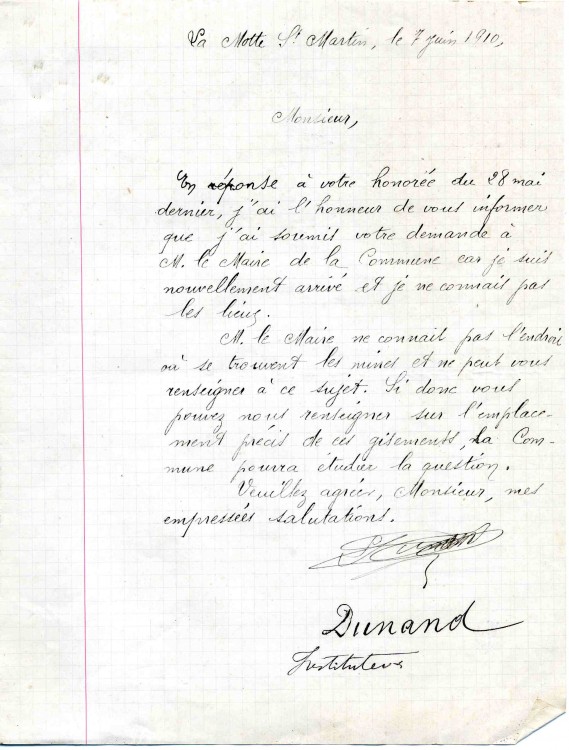 La Motte St Martin, le 7 juin 1910,
Monsieur,
En réponse à votre honorée du 28 mai
dernier, j'ai l'honneur de vous informer
que j'ai soumis votre demande à
M. le Maire de la Commune car je suis
nouvellement arrivé et je ne connais pas
les lieux.
M. le Maire ne connait pas l'endroit
où se trouvent les mines et ne peut vous
renseigner à ce sujet. Si donc vous
pouvez nous renseigner sur l'emplace-
ment précis de ces gisements, la Com-
mune pourra étudier la question.
Veuillez agréer, Monsieur, mes
empressées salutations.
Dunand
Instituteur